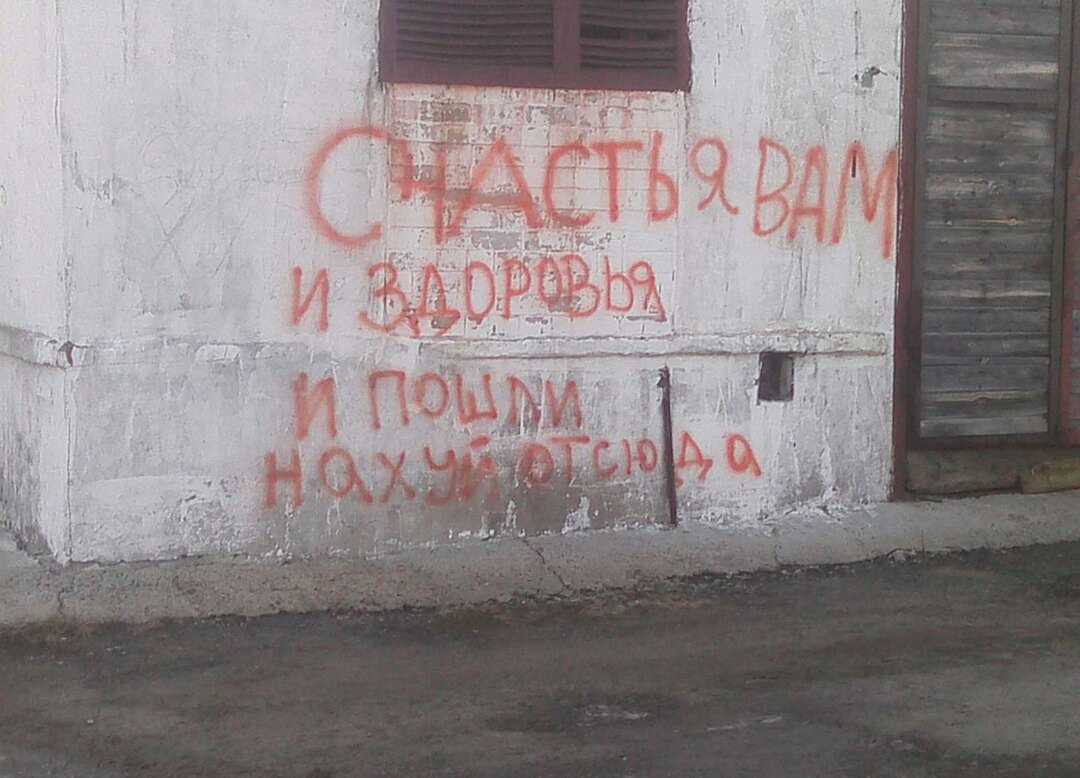 СЧАСТЬЯ ВАМ
И ЗДОРОВЬЯ
И ПОШЛИ
НАХУЙ ОТСЮДА